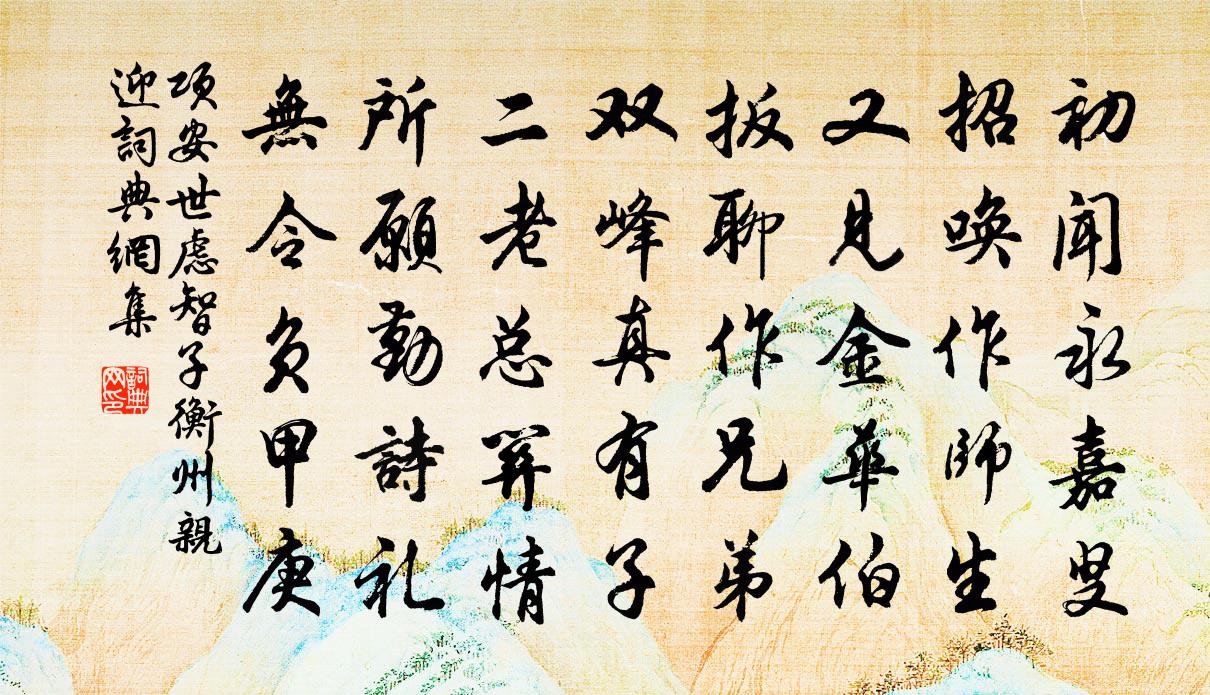 初闻永嘉叟
招唤作师生
又见金華伯
扳聊作兄弟
双峰真有子
二老总関情
所願勤詩礼
無令负甲庚
項安世慮智子衡州親
迎詞典網集
詞典网印